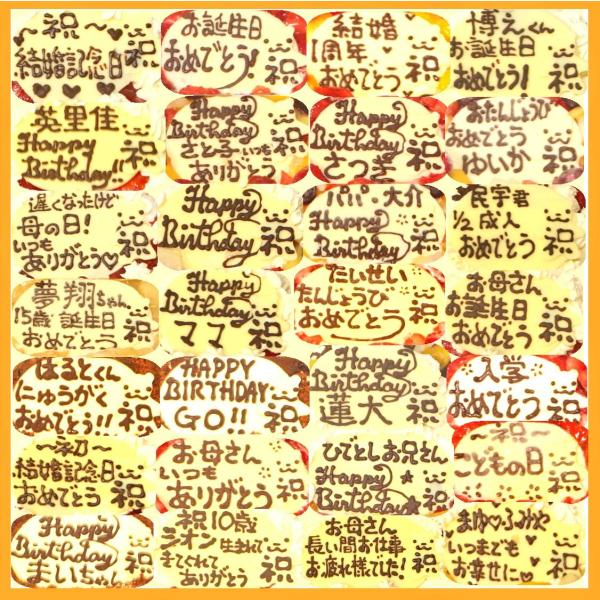 ～祝～
結婚記念日
祝
お誕生日
おめでとう!
祝
結婚
1周年
おめでとう
祝
博えくん
お誕生日
おめでとう!
祝
英里佳
Happy
Birthday!!
祝
Happy
Birthday
さと子いつも
ありがとう
祝
Happy
Birthday
さつき
祝
おたんじょうび
おめでとう
ゆいか
祝
遅くなったけど
母の日!
いつも
ありがとう♡
祝
Happy
Birthday
祝
パパ・大介
Happy
Birthday
祝
民宇君
1/2成人
おめでとう
祝
夢翔ちゃん
15歳誕生日
おめでとう
祝
Happy
Birthday
ママ
祝
たいせい
たんじょうび
おめでとう
祝
お母さん
お誕生日
おめでとう
祝
はるとくん
にゅうがく
おめでとう!!
祝
HAPPY
BIRTHDAY
GO!!
祝
Happy
Birthday
蓮大
祝
入学
おめでとう
祝
～初～
結婚記念日
おめでとう
祝
お母さん
いつも
ありがとう
祝
ひでとしお兄さん
Happy
Birthday
祝
～祝～
こどもの日
祝
Happy
Birthday
まいちゃん
祝
祝10歳
シオン生まれて
きてくれて
ありがとう
祝
お母さん
長い間お仕事
お疲れ様でした!
祝
まゆ♡ふみや
いつまでも
お幸せに♡
祝